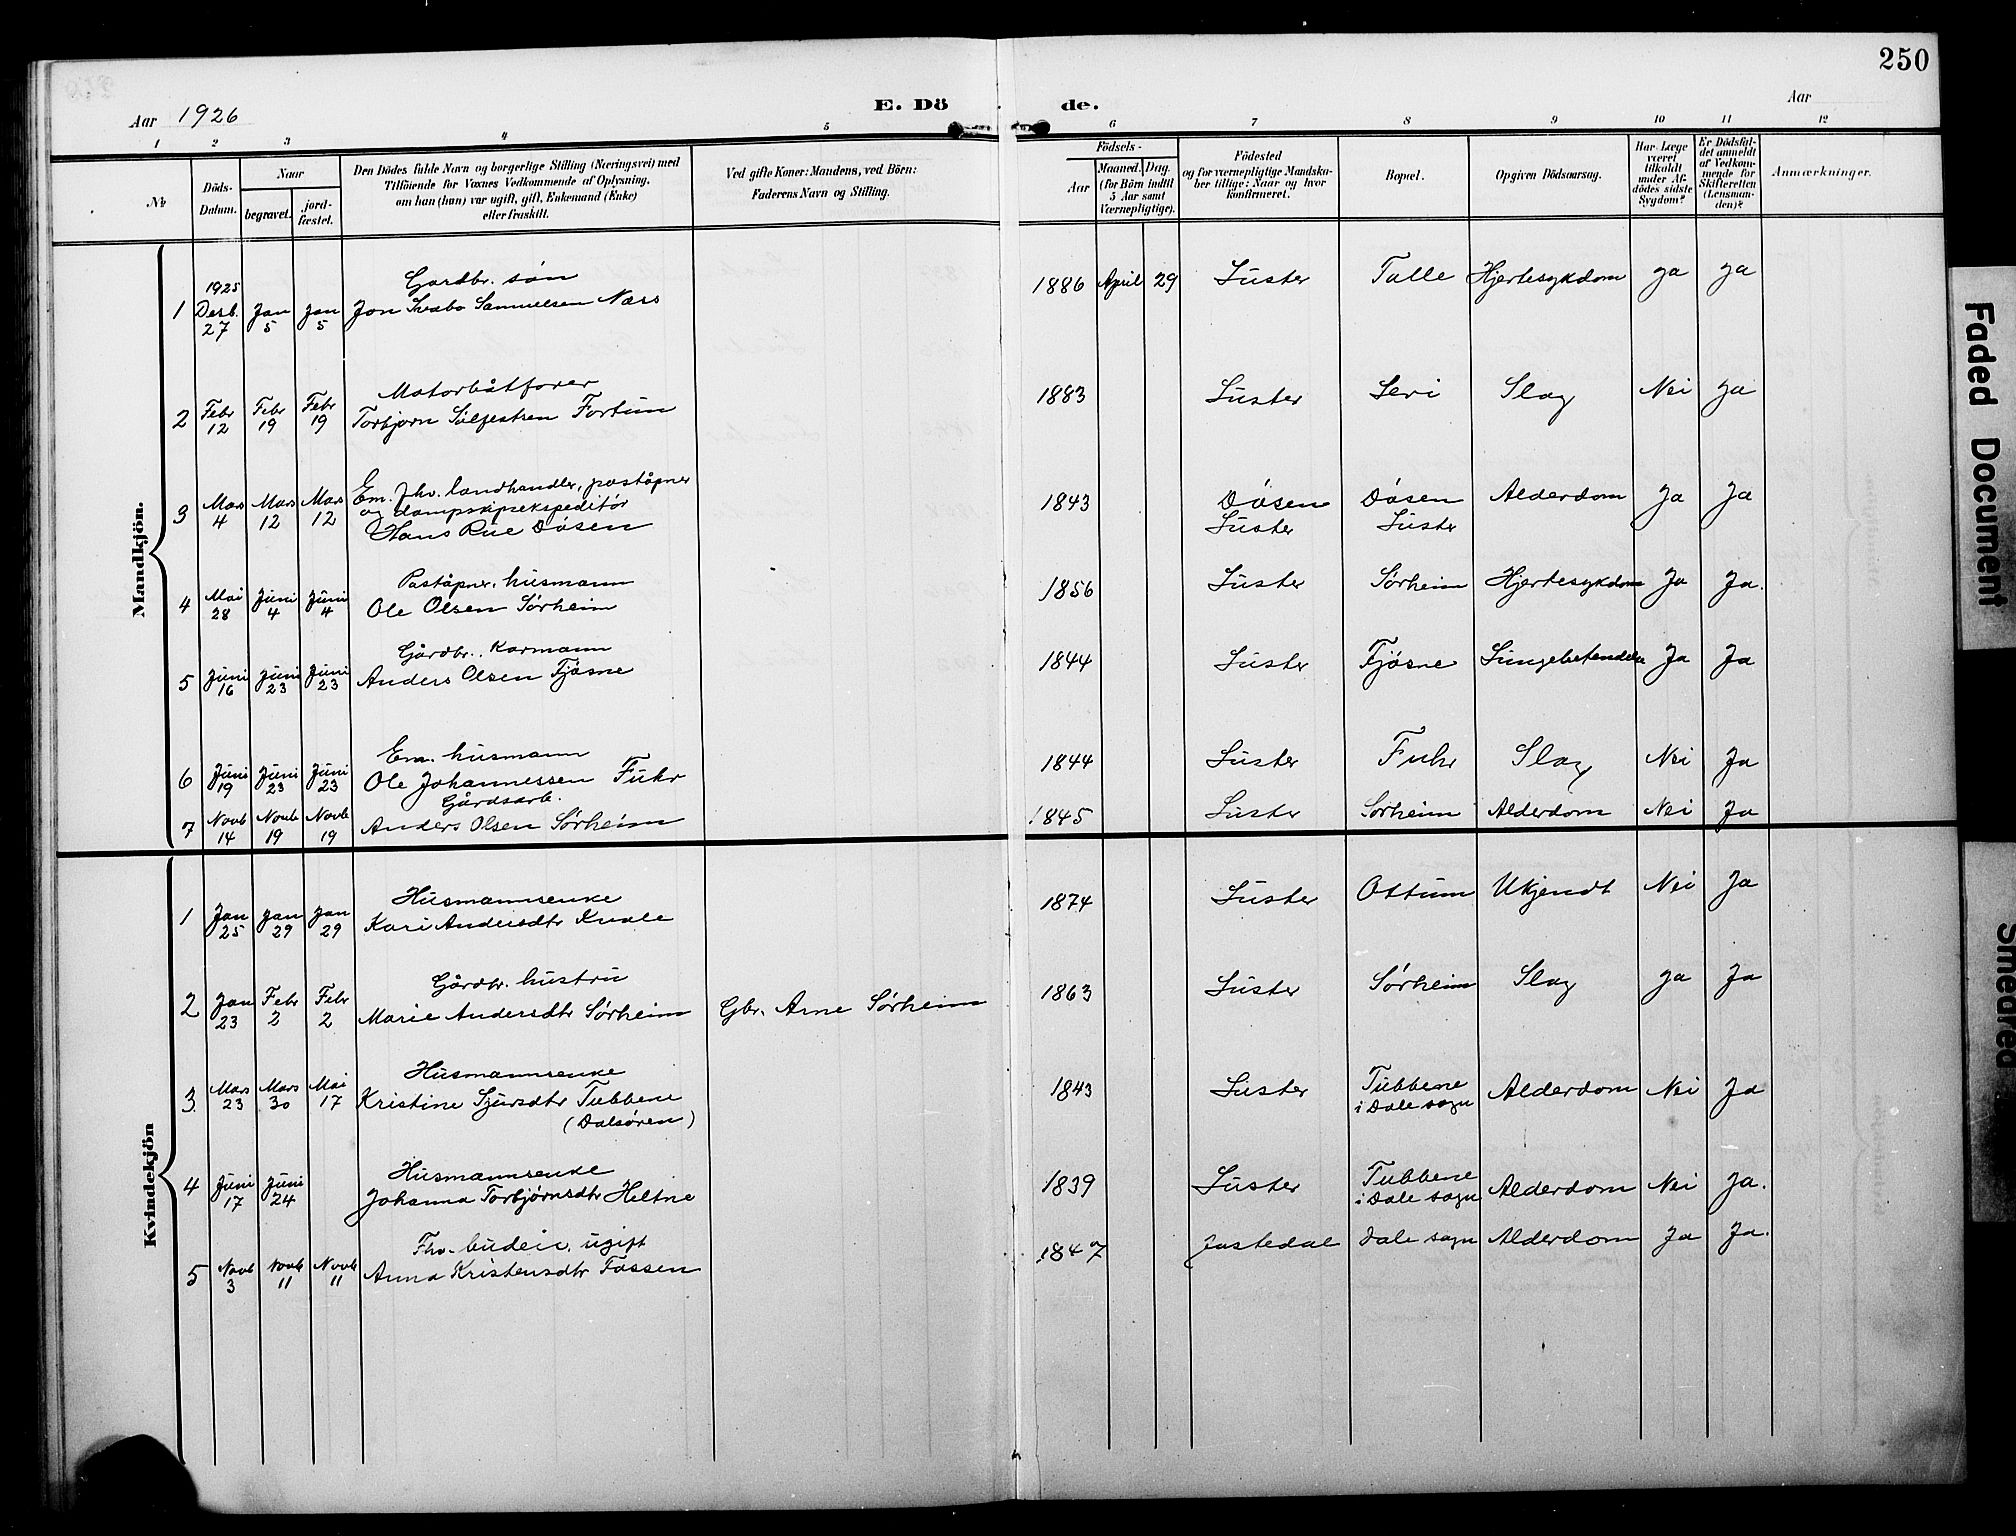 250
Aar 1926
E. Dö de.
Aar
1 2 3 4 5 6 7 8 9 10 11 12
No
Döds-Datum.
Naar
begravet.
jord-fæstet.
Den Dödes fulde Navn og borgerlige Stilling (Næringsvei) med
Tilföiende for Voxnes Vedkommende af Oplysning,
om han (hun) var ugift, gift, Enkemand (Enke)
eller fraskilt.
Ved gifte Koner: Mandens, ved Börn:
Faderens Navn og Stilling.
Födsels-
Aar
Maaned. Dag.
(for Börn indtil
5 Aar samt
Værnepligtige).
Födested
og for værnepligtige Mandska-
ber tillige: Naar og hvor
konfirmeret.
Bopæl.
Opgiven Dödsaarsag.
Har Læge
været
tilkaldt
under Af-
dødes sidste
Sygdom?
Er Dödsfal-
det anmeldt
af Vedkom-
mende for
Skifteretten
(Lensman-
den)?
Anmærkninger.
Mandkjön.
1925 Gardbr. søn
1 Desb. 27 Jan 5 Jan 5 Jon Samuelsen Næss 1886 April 29 Luster Talle Hjertesykdom ja ja
Motorbåtfører
2 Febr 12 Febr 19 Febr 19 Torbjørn Sülfestsen Fortun 1883 Luster Leri Slag Nei ja
Em. fhv. landhandler, poståpner
og dampskipsekspeditør
3 Mars 4 Mars 12 Mars 12 Hans Rue Døsen 1843 Døsen Luster Døsen Luster Alderdom Ja Ja
Poståpner, husmann
4 Mai 28 Juni 4 Juni 4 Ole Olsen Sørheim 1856 Luster Sørheim Hjertesykdom Ja Ja.
Gårdbr. Karmann
5 Juni 16 Juni 23 Juni 23 Anders Olsen Fjøsne 1844 Luster Fjøsne Lungebetendelse Ja Ja
Em. husmann
6 Juni 19 Juni 23 Juni 23 Ole Johannessen Fuhr 1844 Luster Fuhr Slag Nei Ja
Gårdsarb.
7 Novb 14 Novb 19 Novb 19 Anders Olsen Sørheim 1845 Luster Sørheim Alderdom Nei Ja
Kvindekjön
Husmannsenke
1 Jan 25 Jan 29 Jan 29 Kari Andersdtr Kvale 1874 Luster Ottum Ukjendt Nei Ja
Gårdbr. hustru
2 Jan 23 Febr 2 Febr 2 Marie Andersdtr Sørheim Gbr. Arne Sørheim 1863 Luster Sørheim Slag ja Ja
Husmannsenke
3 Mars 23 Mars 30 Mai 17 Kristine Sjursdtr Tubbene 1843 Luster Tubbene i Dale sogn Alderdom Nei Ja
(Dalsøren)
Husmannsenke
4 Juni 17 Juni 24 Johanna Torbjørnsdtr Heltne 1839 Luster Tubbene i Dale sogn Alderdom Nei Ja.
Fhv. budeie, ugift
5 Novb 3 Novb 11 Novb 11 Anna Kristensdtr Fossen 1847 Jostedal Dale sogn Alderdom Ja Ja.
Faded Document
Smeared